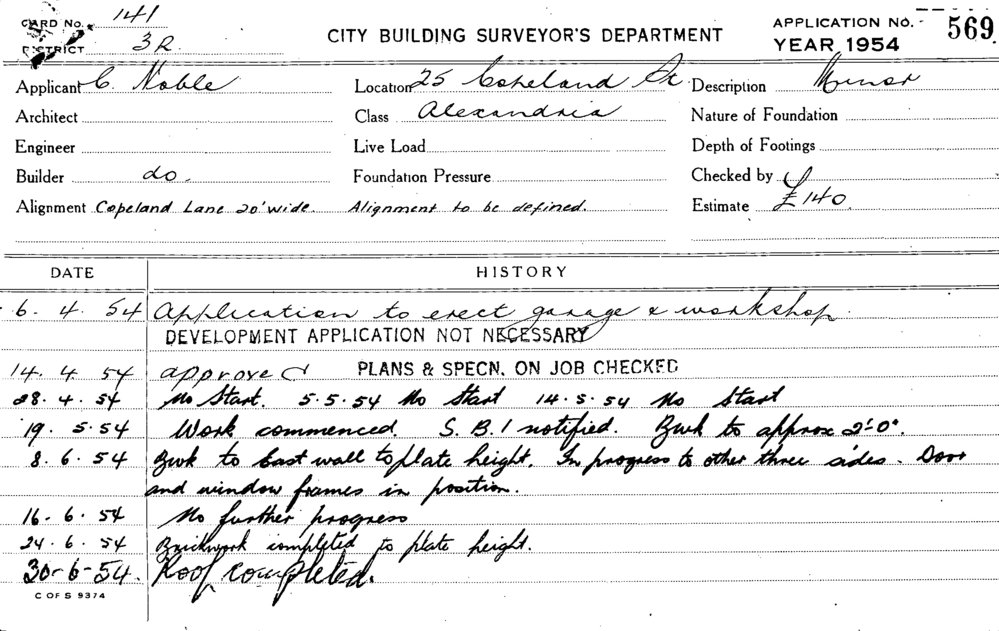 CARD NO. 141
DISTRICT 3R
CITY BUILDING SURVEYOR'S DEPARTMENT
APPLICATION NO. 569
YEAR 1954
Applicant C. Noble Location 25 Copeland St. Description Minor
Architect Class Alexandria Nature of Foundation
Engineer Live Load Depth of Footings
Builder do. Foundation Pressure Checked by
Alignment Copeland Lane 20' wide. Alignment to be defined. Estimate £140
DATE HISTORY
6. 4. 54 Application to erect garage & workshop.
DEVELOPMENT APPLICATION NOT NECESSARY
14. 4. 54 approved PLANS & SPECN. ON JOB CHECKED
28. 4. 54 No Start. 5.5.54 No Start 14.5.54 No Start
19. 5.54 Work commenced. S.B.I notified. Bwk to approx 2'-0".
8. 6. 54 Bwk to East wall to plate height. In progress to other three sides. Door
and window frames in position.
16. 6. 54 No further progress
24. 6. 54 Brickwork completed to plate height.
30-6-54. Roof completed.
C OF S 9374